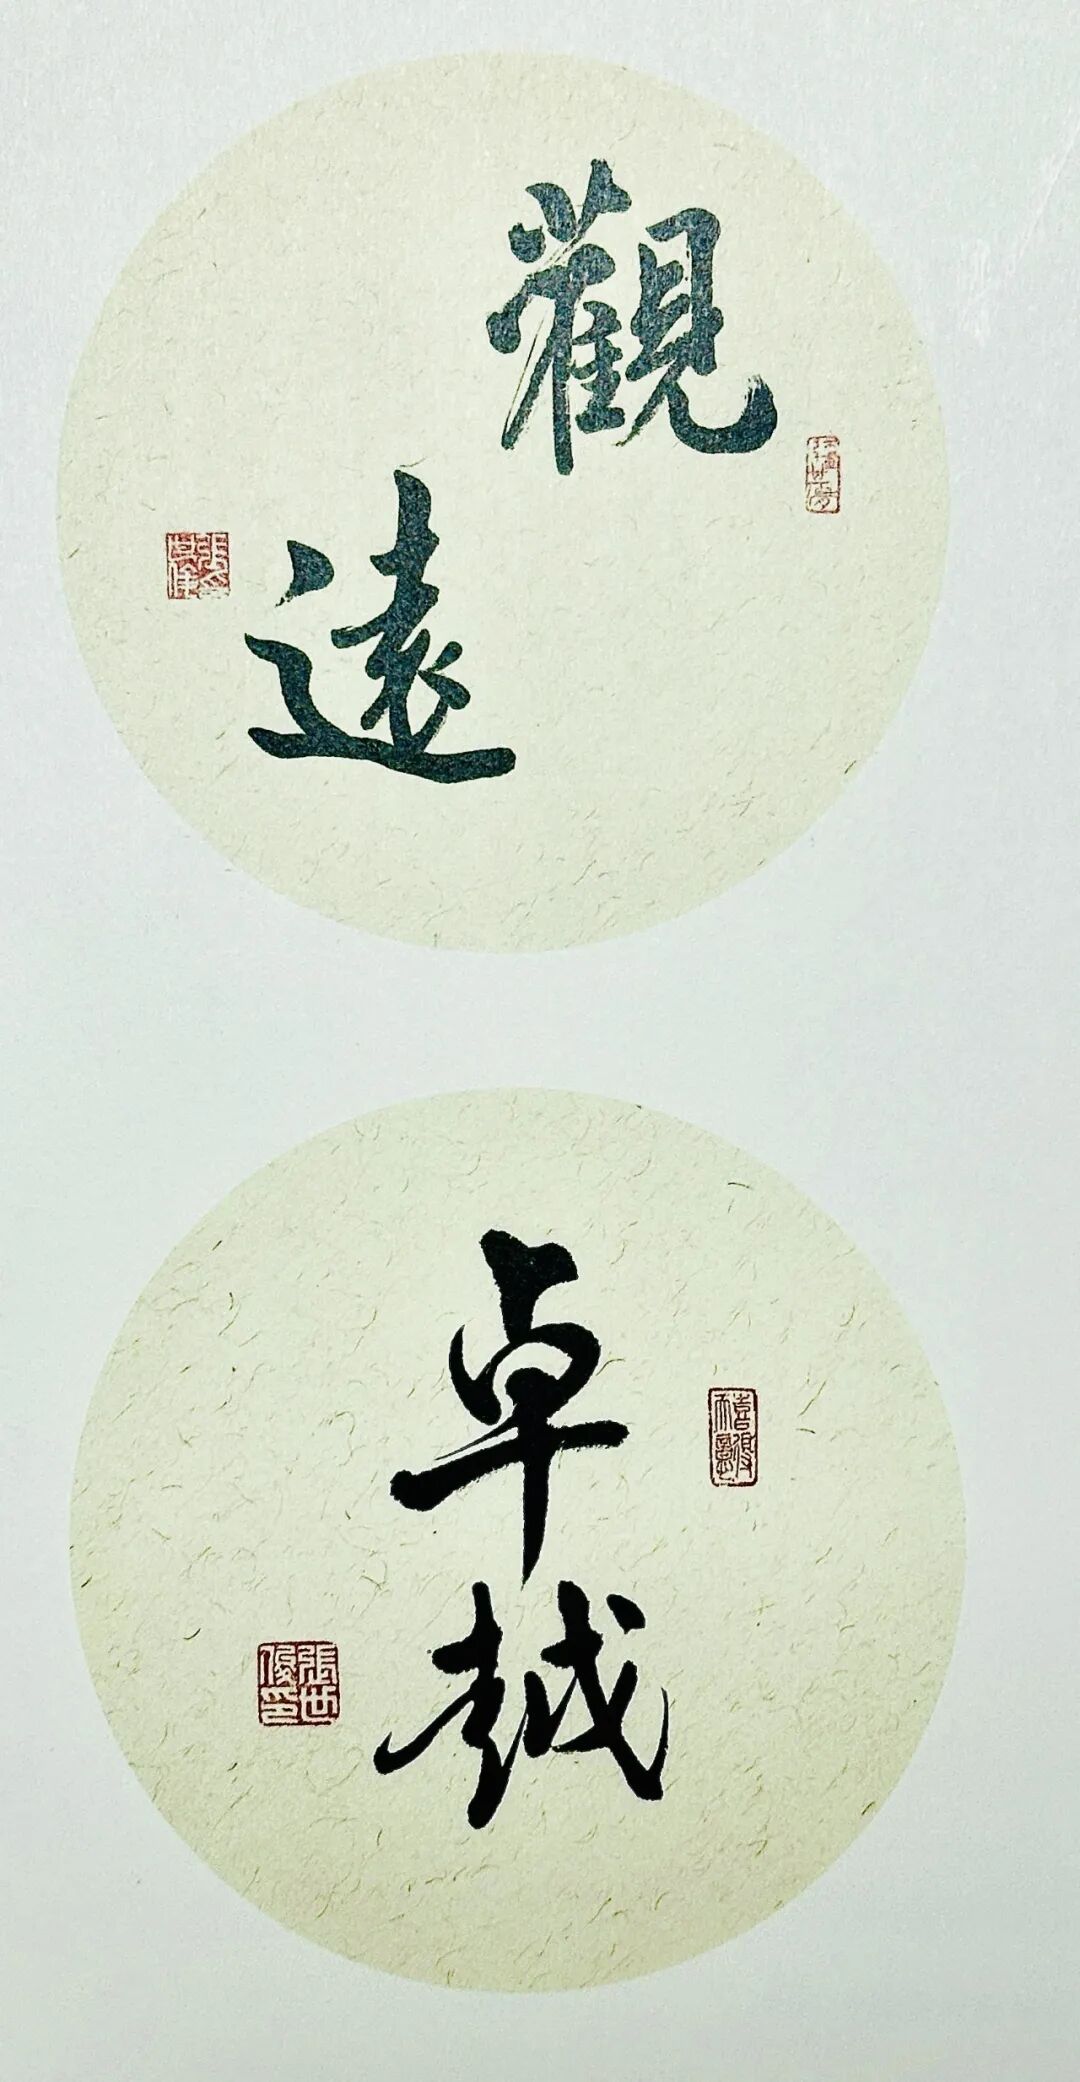 觀
遠
卓
越
張世
俊印